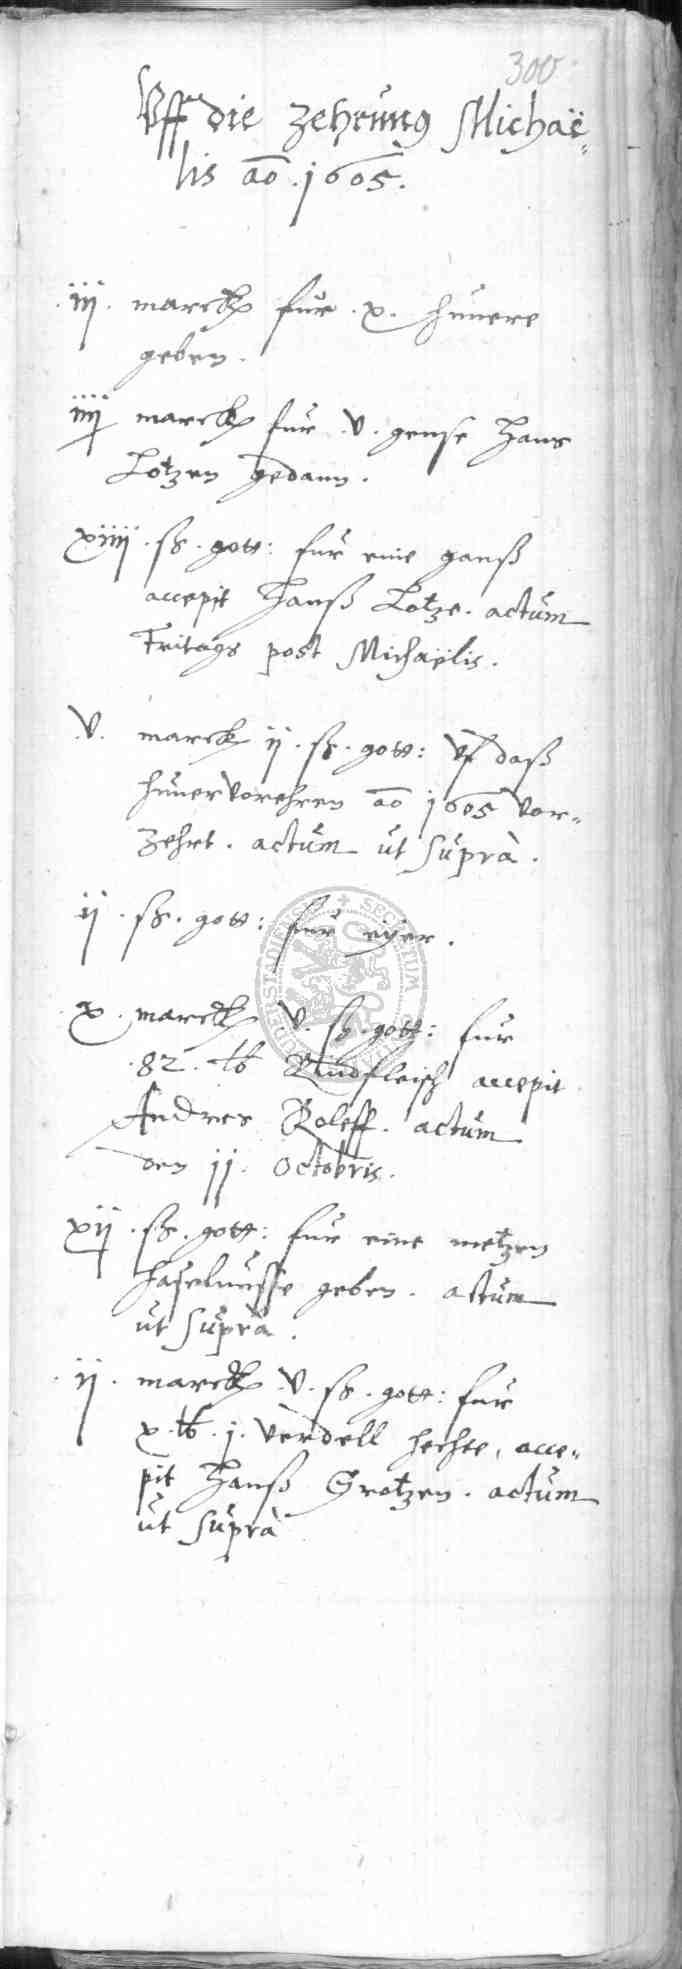 300
Vff die zehrung Michaë„
lis aō. 1605.
.iij. marck für .x. hünere
geben.
iiij marck für .v. gense Hans
Lotzen gedann.
xiiij. ß. gott: für eine ganß
accepit Hanß Lotze. actum
Fritags post Michaëlis.
.v. marck ij. ß. gott: vf daß
hüner vorehren aō 1605 vor„
zehrt. actum ut suprà.
ij. ß. gott: für eyer.
.x. marck v. ß. gott: für
.82. lb Rindfleisch accepit
Andres Roleff. actum
den 11. Octobris.
xij. ß. gott: für eine metzen
haselnüsse geben. actum
ut suprà.
.ij. marck .v. ß. gott: für
x. lb. j. verdell hechte, acce„
pit Hanß Grotzen. actum
ut suprà